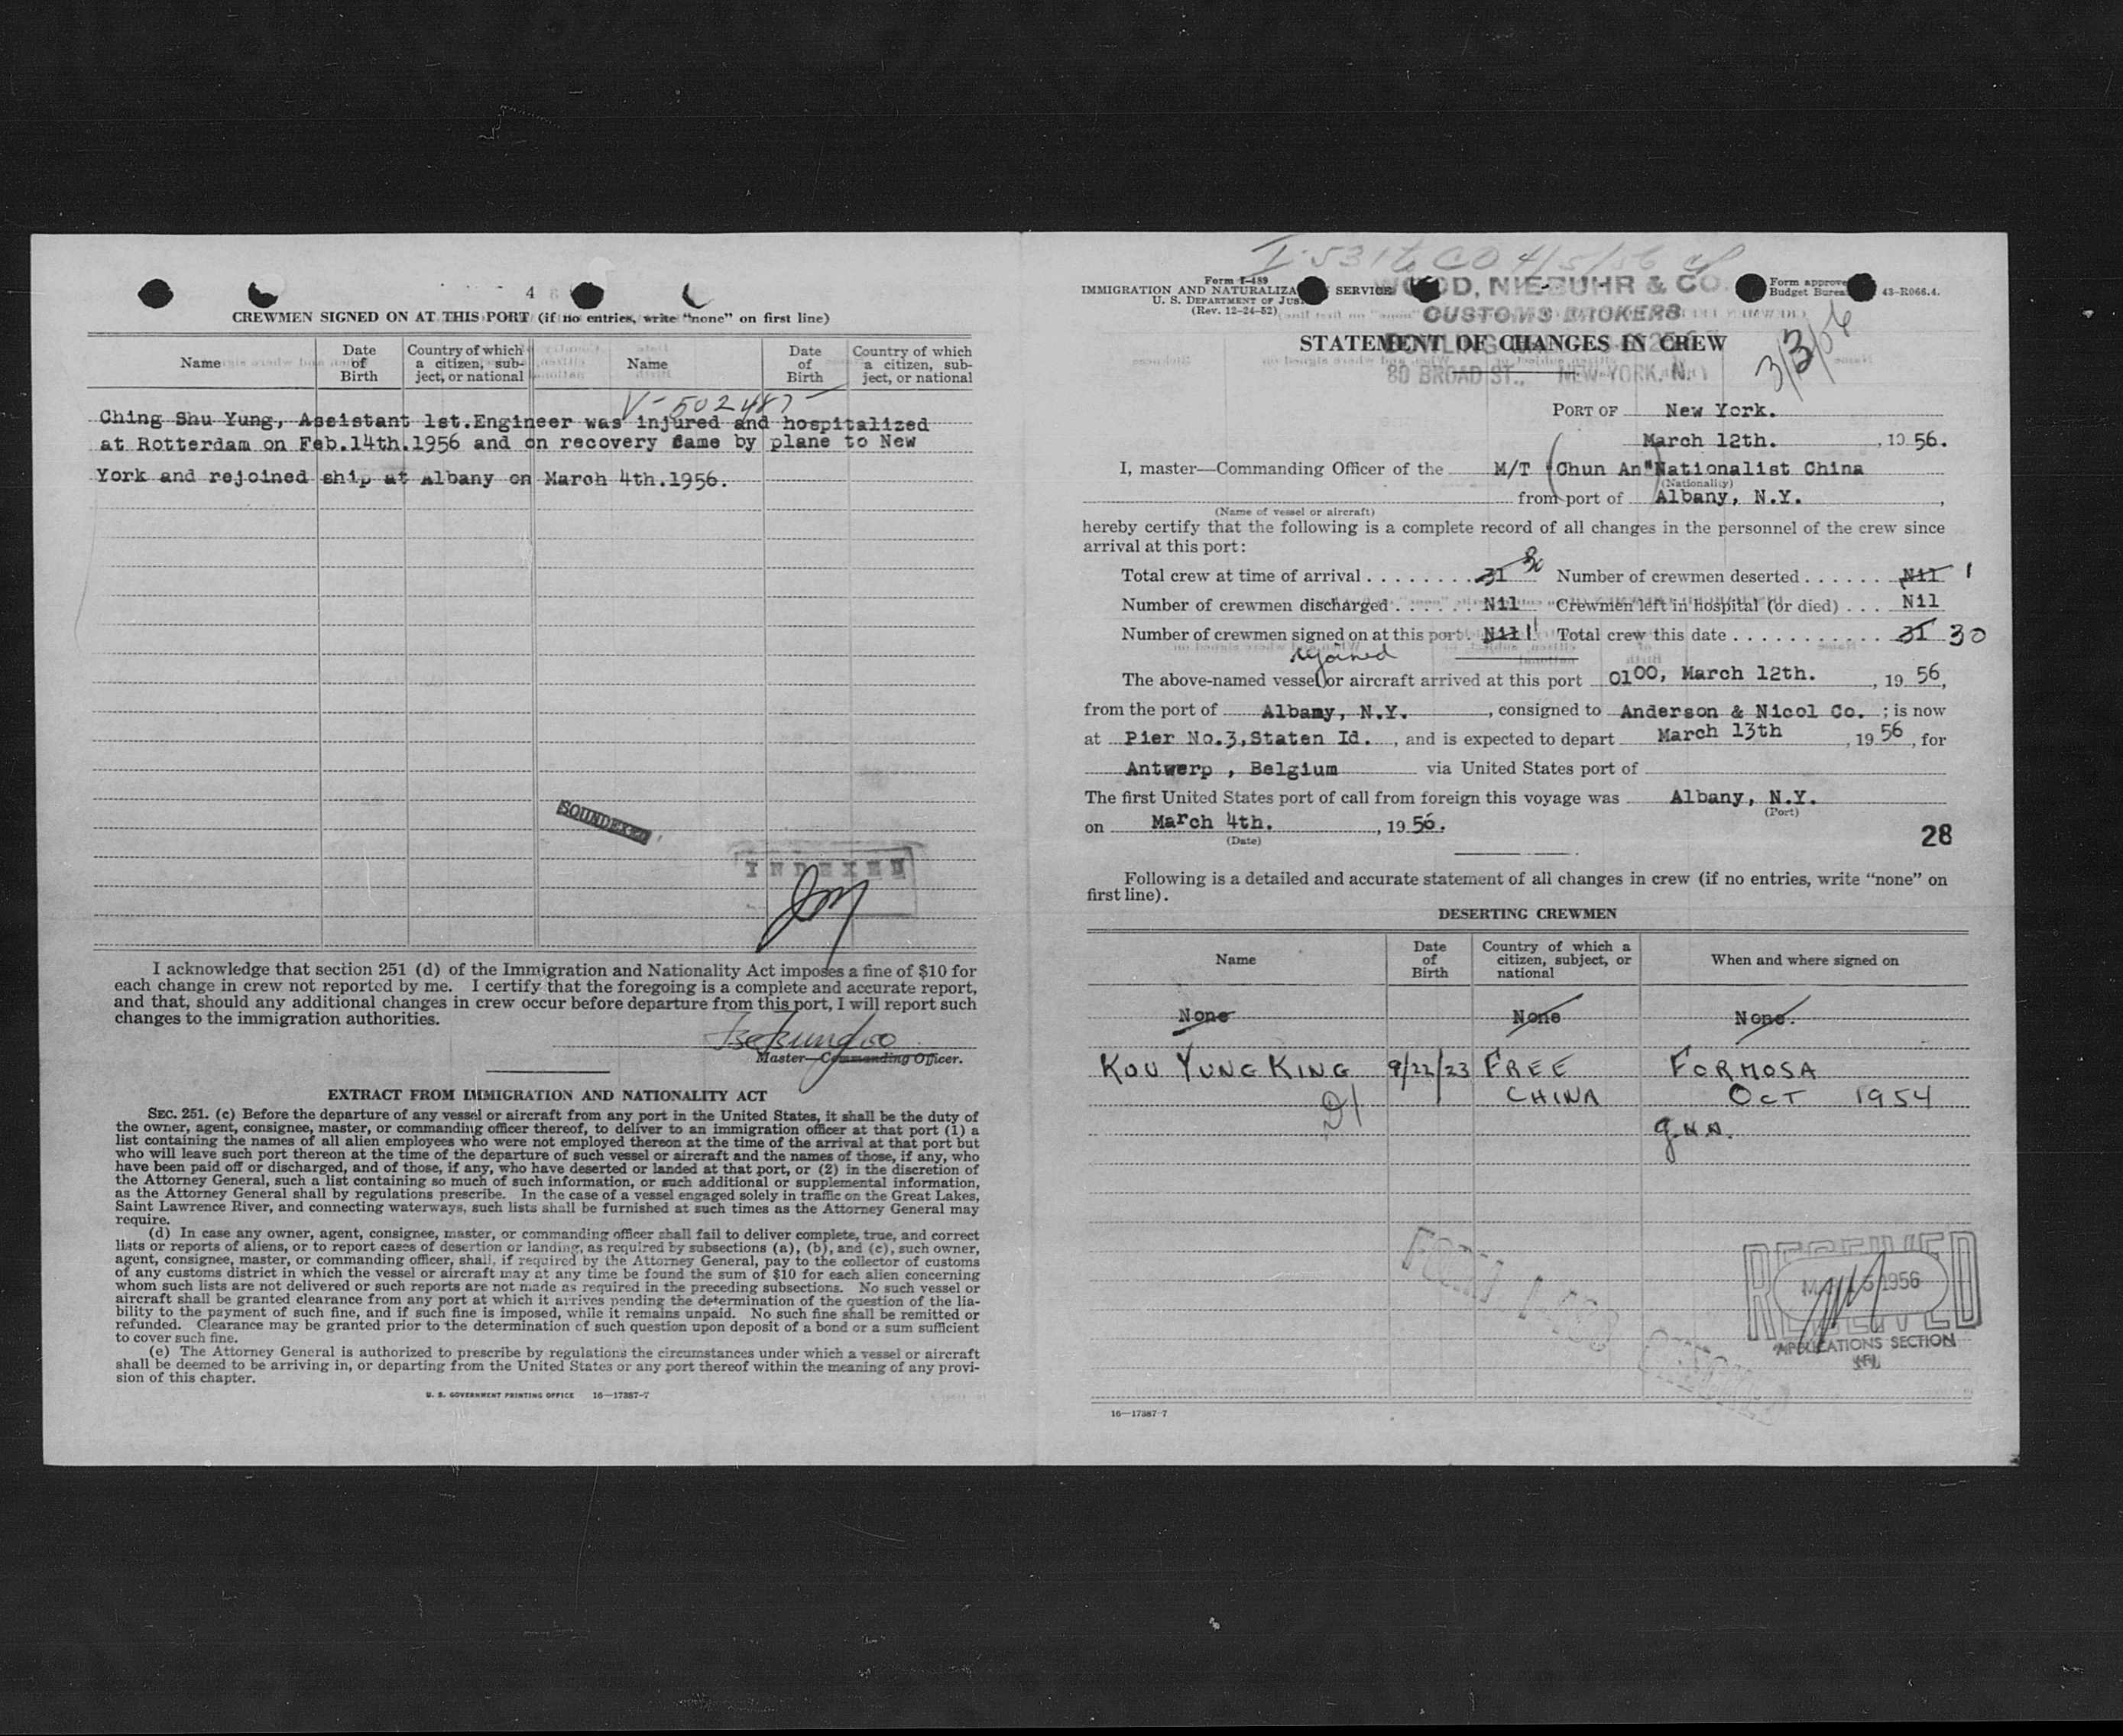 4
CREWMEN SIGNED ON AT THIS PORT (if no entries, write "none" on first line)
Name
Date of Birth
Country of which a citizen, subject, or national
Name
Date of Birth
Country of which a citizen, subject, or national
V-502487
Ching Shu Yung, Assistant 1st.Engineer was injured and hospitalized
at Rotterdam on Feb.14th.1956 and on recovery came by plane to New
York and rejoined ship at Albany on March 4th.1956.
SOUNDEXED
INDEXED
I acknowledge that section 251 (d) of the Immigration and Nationality Act imposes a fine of $10 for
each change in crew not reported by me. I certify that the foregoing is a complete and accurate report,
and that, should any additional changes in crew occur before departure from this port, I will report such
changes to the immigration authorities.
Master—Commanding Officer.
EXTRACT FROM IMMIGRATION AND NATIONALITY ACT
SEC. 251. (c) Before the departure of any vessel or aircraft from any port in the United States, it shall be the duty of
the owner, agent, consignee, master, or commanding officer thereof, to deliver to an immigration officer at that port (1) a
list containing the names of all alien employees who were not employed thereon at the time of the arrival at that port but
who will leave such port thereon at the time of the departure of such vessel or aircraft and the names of those, if any, who
have been paid off or discharged, and of those, if any, who have deserted or landed at that port, or (2) in the discretion of
the Attorney General, such a list containing so much of such information, or such additional or supplemental information,
as the Attorney General shall by regulations prescribe. In the case of a vessel engaged solely in traffic on the Great Lakes,
Saint Lawrence River, and connecting waterways, such lists shall be furnished at such times as the Attorney General may
require.
(d) In case any owner, agent, consignee, master, or commanding officer shall fail to deliver complete, true, and correct
lists or reports of aliens, or to report cases of desertion or landing, as required by subsections (a), (b), and (c), such owner,
agent, consignee, master, or commanding officer, shall, if required by the Attorney General, pay to the collector of customs
of any customs district in which the vessel or aircraft may at any time be found the sum of $10 for each alien concerning
whom such lists are not delivered or such reports are not made as required in the preceding subsections. No such vessel or
aircraft shall be granted clearance from any port at which it arrives pending the determination of the question of the lia-
bility to the payment of such fine, and if such fine is imposed, while it remains unpaid. No such fine shall be remitted or
refunded. Clearance may be granted prior to the determination of such question upon deposit of a bond or a sum sufficient
to cover such fine.
(e) The Attorney General is authorized to prescribe by regulations the circumstances under which a vessel or aircraft
shall be deemed to be arriving in, or departing from the United States or any port thereof within the meaning of any provi-
sion of this chapter.
U. S. GOVERNMENT PRINTING OFFICE 16—17387-7
Form I-489
IMMIGRATION AND NATURALIZA SERVICE
U. S. DEPARTMENT OF JUS
(Rev. 12-24-52)
WOOD, NIEBUHR & CO.
CUSTOMS BROKERS
80 BROAD ST., NEW YORK, N.
Form approve
Budget Bureau 43-R066.4.
STATEMENT OF CHANGES IN CREW
PORT OF New York.
March 12th. , 1956.
I, master—Commanding Officer of the M/T "Chun An" Nationalist China
(Nationality)
from port of Albany, N.Y. ,
(Name of vessel or aircraft)
hereby certify that the following is a complete record of all changes in the personnel of the crew since
arrival at this port:
Total crew at time of arrival 31 30 Number of crewmen deserted Nil 1
Number of crewmen discharged Nil Crewmen left in hospital (or died) Nil
Number of crewmen signed on at this port Nil 1 Total crew this date 31 30
rejoined
The above-named vessel or aircraft arrived at this port 0100, March 12th. , 1956,
from the port of Albany, N.Y. , consigned to Anderson & Nicol Co. ; is now
at Pier No.3,Staten Id. , and is expected to depart March 13th , 1956, for
Antwerp , Belgium via United States port of
The first United States port of call from foreign this voyage was Albany, N.Y.
(Port)
on March 4th. , 1956.
(Date)
28
Following is a detailed and accurate statement of all changes in crew (if no entries, write "none" on
first line).
DESERTING CREWMEN
Name
Date of Birth
Country of which a citizen, subject, or national
When and where signed on
None None None.
KOU YUNG KING 9/22/23 FREE FORMOSA
CHINA OCT 1954
RECEIVED
1956
APPLICATIONS SECTION
16—17387-7